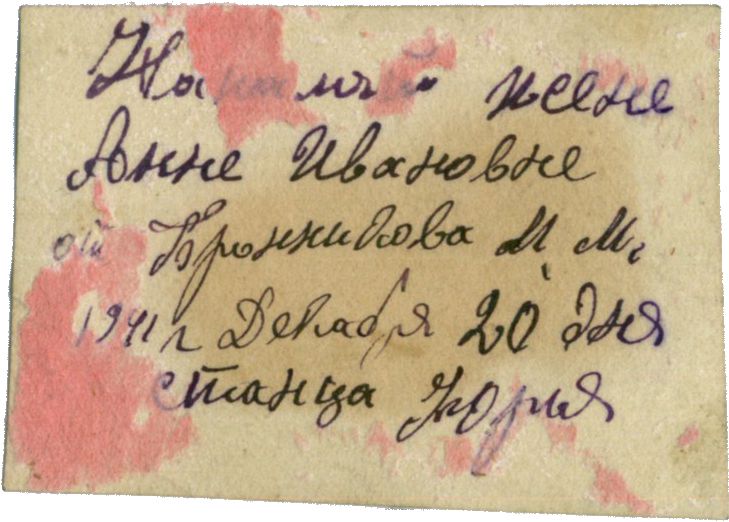 На память жене
Анне Ивановне
от Бронникова М М.
1941 г Декабря 20 дня
станца Юрья